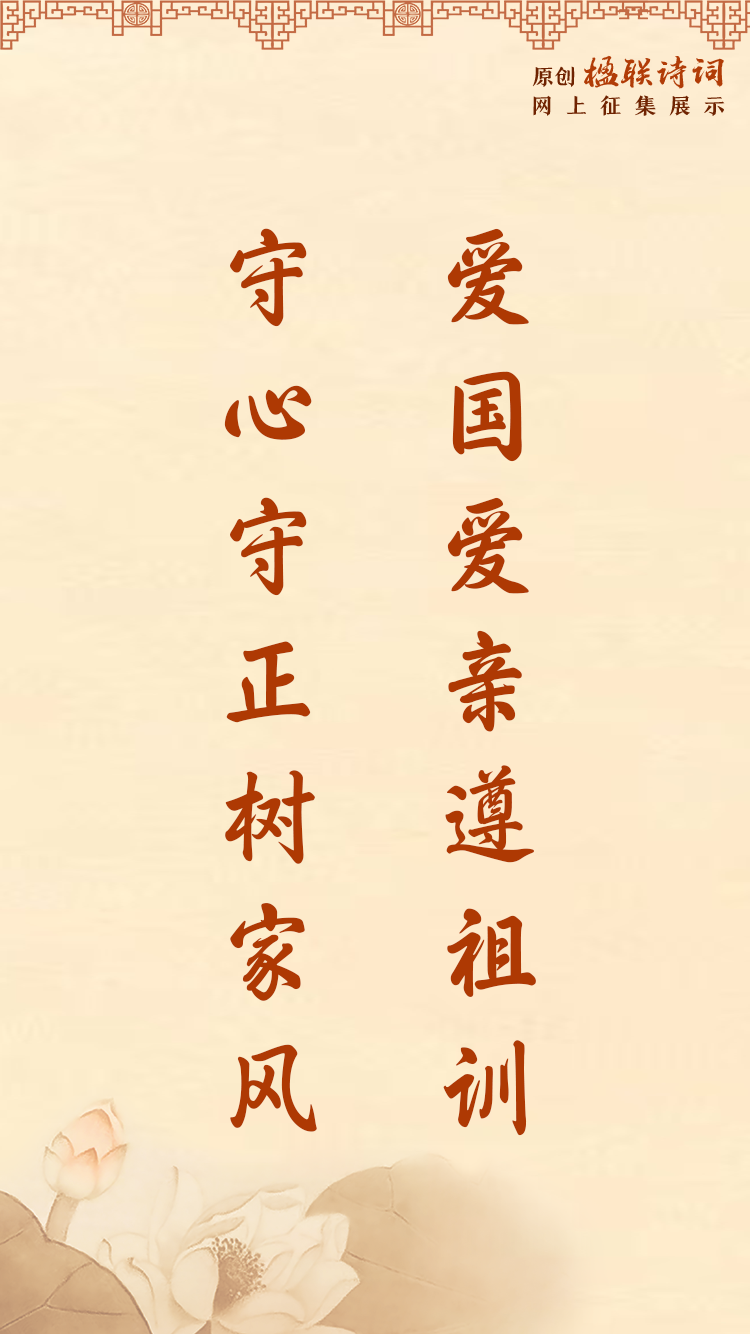 原创 楹联诗词
网上征集展示
爱国爱亲遵祖训
守心守正树家风